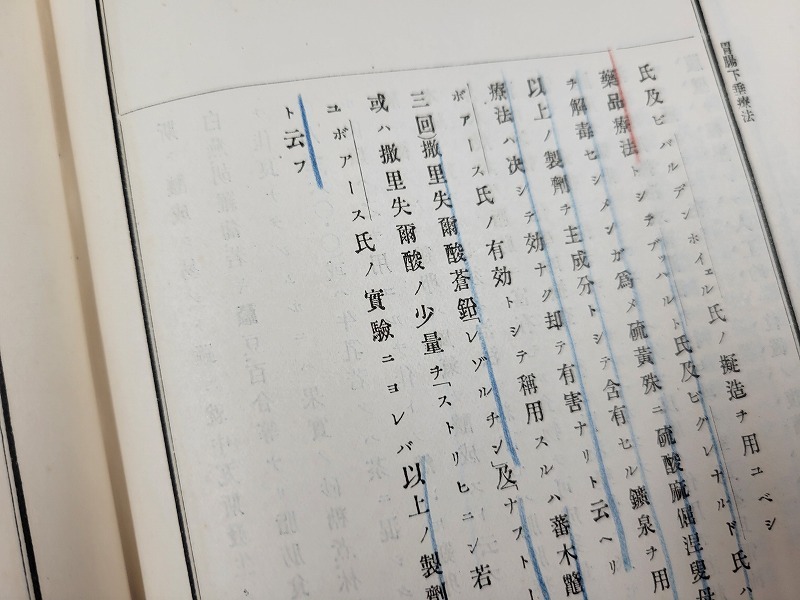 胃腸下垂療法
氏及ビバルデンホイエル氏ノ擬造ヲ用ユベシ
藥品療法トシテアッハルト氏及ビグレナルド氏ハ
ヲ解毒セシメンガ爲メ硫黄殊ニ硫酸麻倔涅叟母
以上ノ製劑ヲ主成分トシテ含有セル鑛泉ヲ用
療法ハ決シテ効ナク却テ有害ナリト云ヘリ
ボアース氏ノ有効トシテ稱用スルハ蕃木鼈
三回)撒里失爾酸蒼鉛「レゾルチン」及「ナフトー
或ハ撒里失爾酸ノ少量ヲ「ストリヒニン若
ユボアース氏ノ實驗ニヨレバ以上ノ製劑
ト云フ